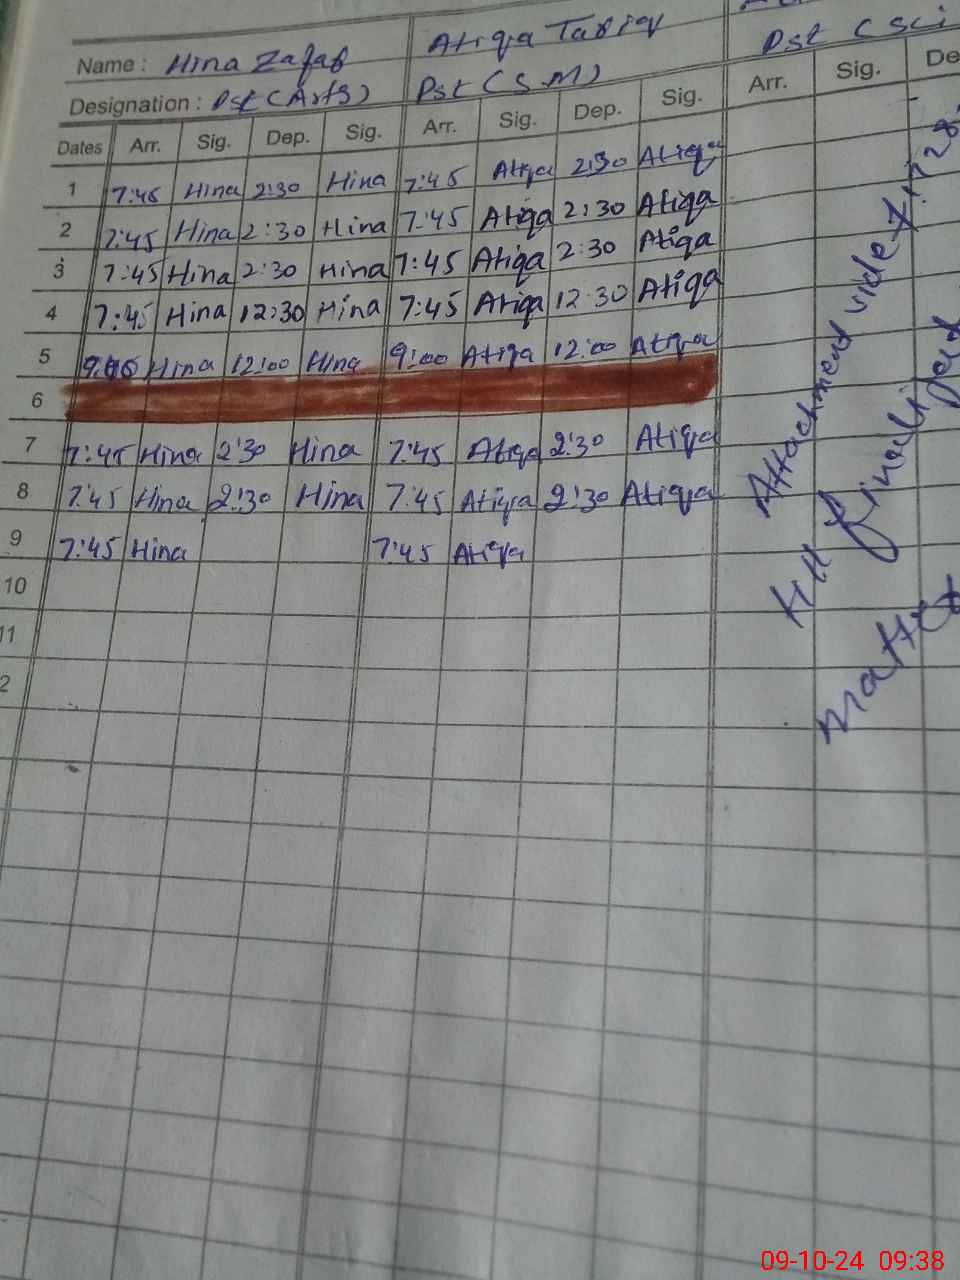 Name : Hina Zafar Atiqa Tariq
Designation : Pst (Arts) Pst (S.M) Pst (Sci
Dates Arr. Sig. Dep. Sig. Arr. Sig. Dep. Sig. Arr. Sig. De
1 7:45 Hina 2:30 Hina 7:45 Atiqa 2:30 Atiqa
2 7:45 Hina 2:30 Hina 7:45 Atiqa 2:30 Atiqa
3 7:45 Hina 2:30 Hina 7:45 Atiqa 2:30 Atiqa
4 7:45 Hina 12:30 Hina 7:45 Atiqa 12:30 Atiqa
5 Hina 12:00 Hina 9:00 Atiqa 12:00 Atiqa
6
7 7:45 Hina 2:30 Hina 7:45 Atiqa 2:30 Atiqa
8 7:45 Hina 2:30 Hina 7:45 Atiqa 2:30 Atiqa
9 7:45 Hina 7:45 Atiqa
10
11
2
Attachment vide
till finali
matt
09-10-24 09:38